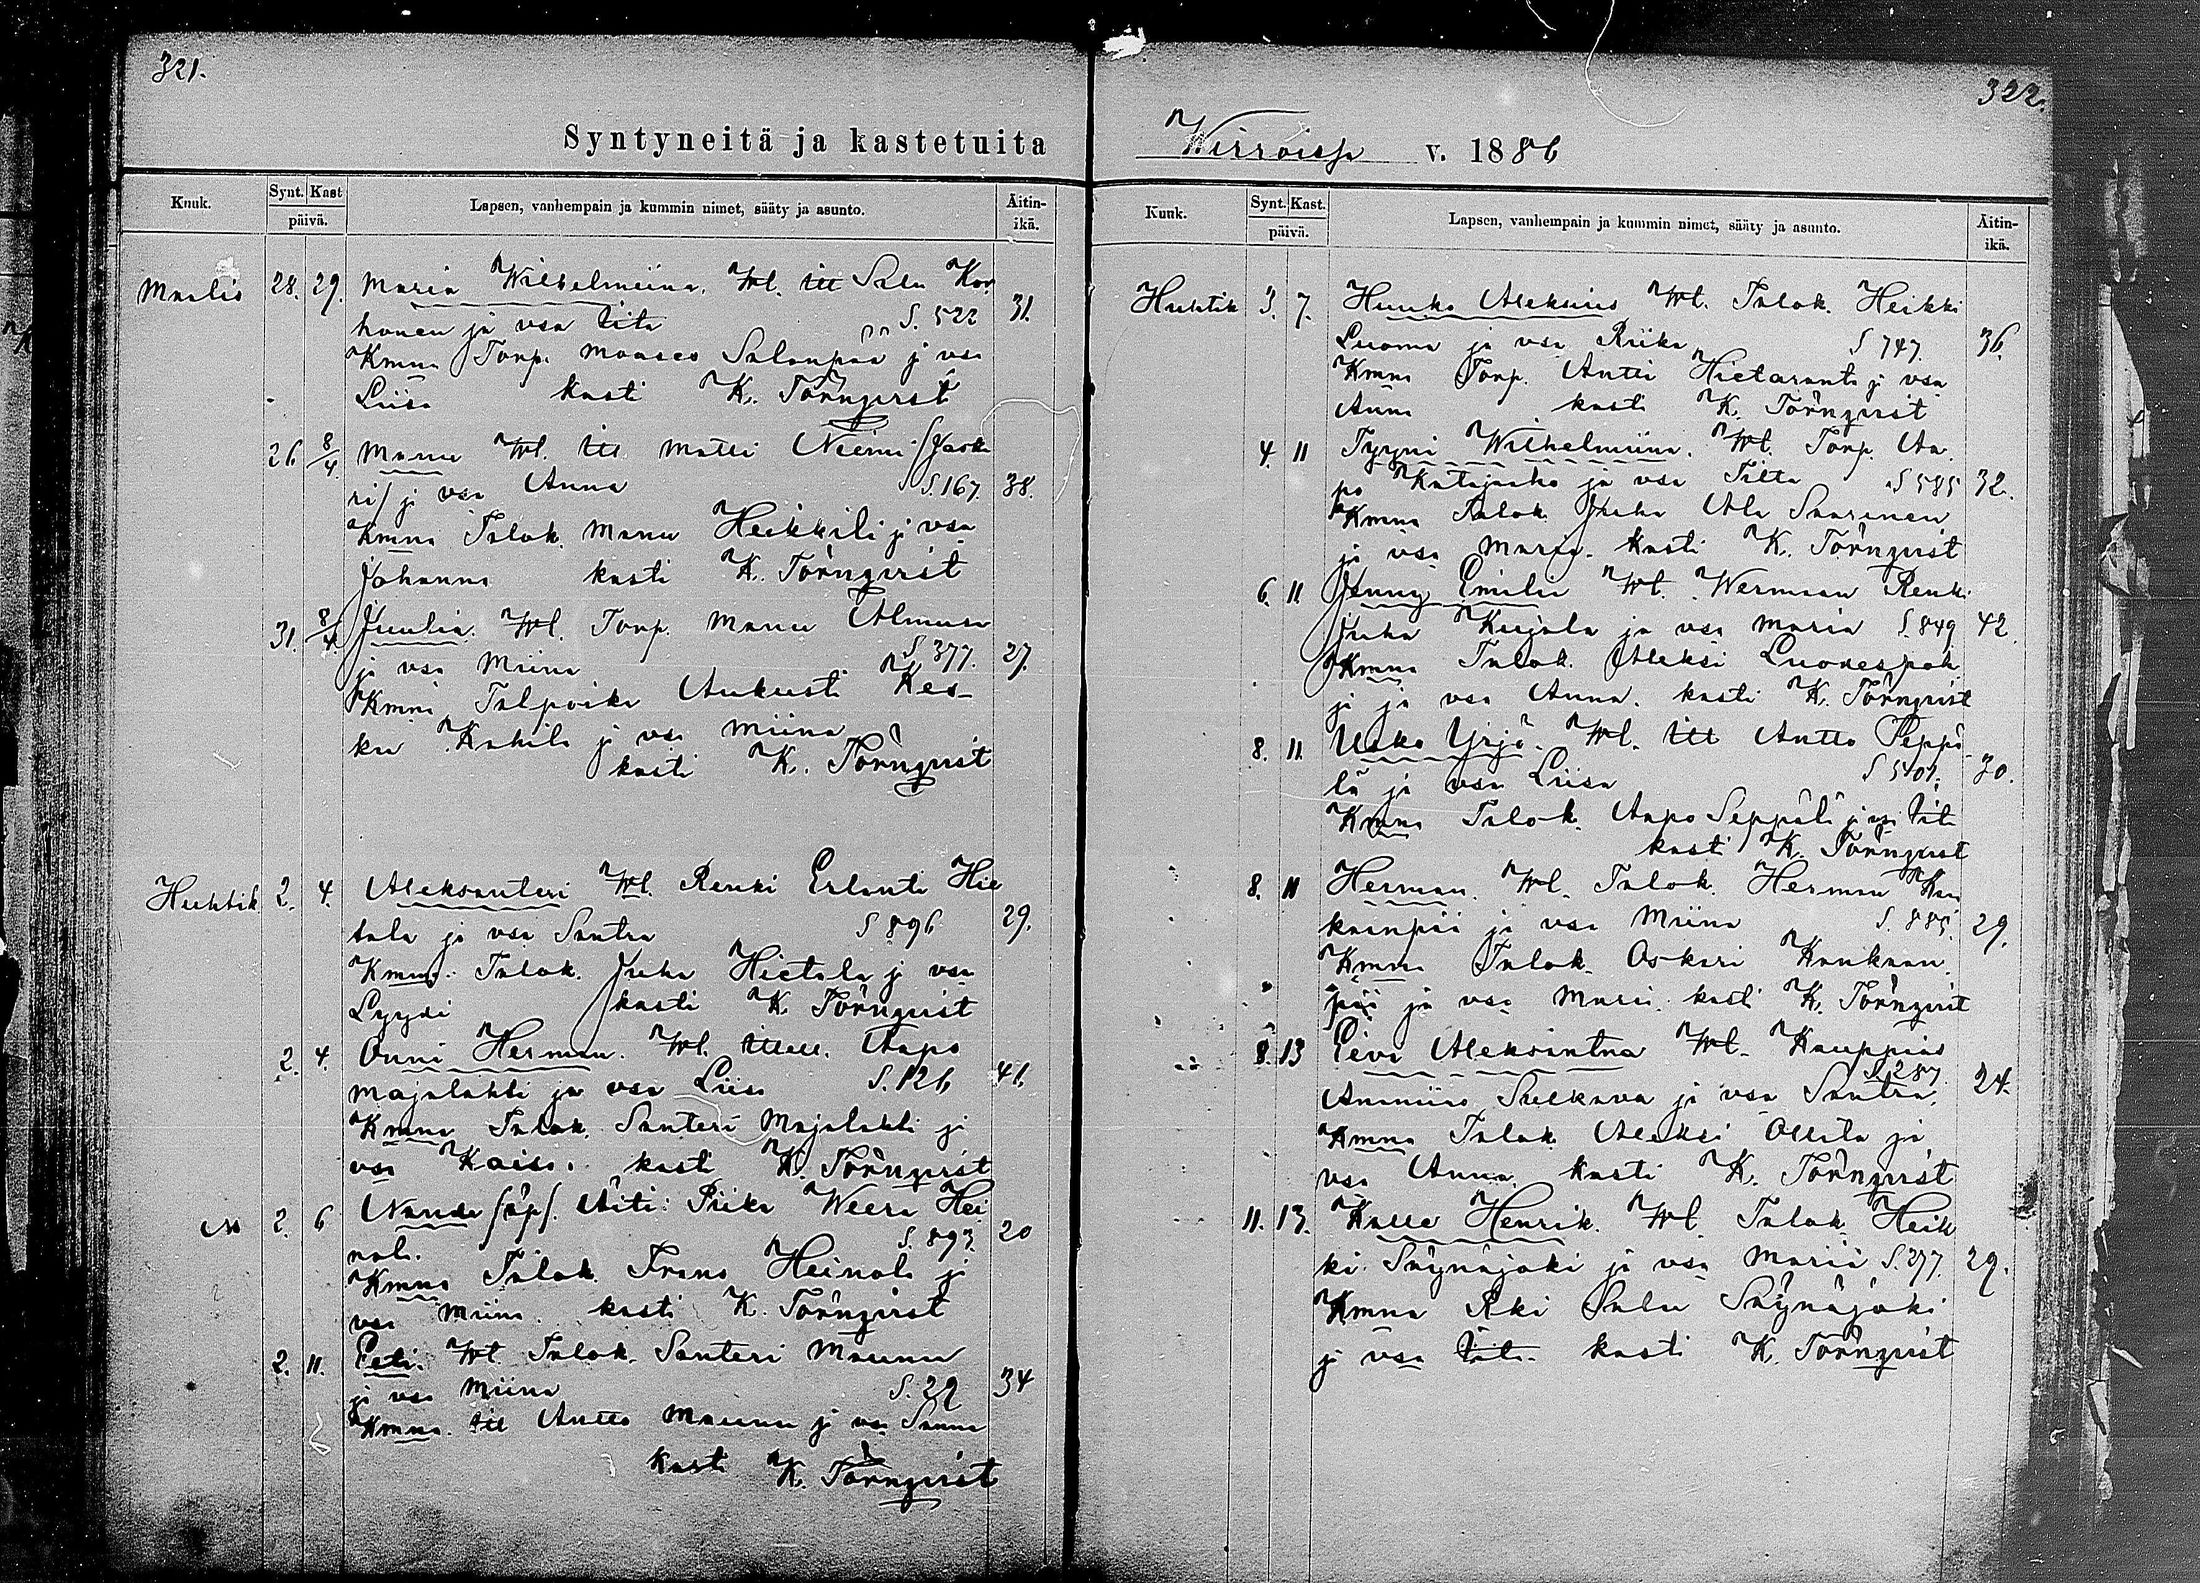 321.
Syntyneitä ja kastetuita
Kuuk. Synt. Kast päivä. Lapsen, vanhempain ja kummin nimet, sääty ja asunto. Äitin-ikä.
Maalis 28. 29. Maria Wilhelmiina. Wl. Itt Salu Kor
honen ja vsa Tita S. 522 31.
Kmna Torp. Mooses Salonpää j vsa
Liisa kasti K. Törnqvist
26 8/4 Manu Wl. Itt Matti Niemi /Jaska
ri/ j vsa Anna S. 167. 38.
Kmna Talok. Manu Heikkilä j vsa
Johanna kasti K. Törnqvist
31. 8/4. Juulia. Wl. Torp. Manu Almusa
j vsa Miina S. 377. 27.
Kmni Talpoika Aukusti Kes-
ku Kahila j vsa Miina
kasti K. Törnqvist
Huhtik 2. 4. Aleksanteri Wl. Renki Erlanti Hie
tala ja vsa Santra S 896 29.
Kmna. Talok. Juha Hietala j vsa
Lyydi kasti K. Törnqvist
2. 4. Onni Herman. Wl. Aapo
Majalahti ja vsa Liisa S. 126 41.
Kmna Talok. Santeri Majalahti j
vsa Kaisa. kasti K. Törnqvist
2. 6 Nanda /äp/. Äiti: Piika Weera Hei
nola. S. 893. 20
Kmna Talok. Frans Heinola j
vsa Miina. kasti K. Törnqvist
2. 11. Eeti. Wl. Talok. Santeri Maunu
j vsa Miina S. 29 34
Kmna. Itt Antto Maunu j vsa Sanna
kasti K. Törnqvist
322.
Wirroissa v. 1886
Kuuk. Synt. Kast. päivä. Lapsen, vanhempain ja kummin nimet, sääty ja asunto. Äitin-ikä.
Huhtik 3. 7. Huuko Aleksius Wl. Talok. Heikki
Luoma ja vsa Riika S 747. 36.
Kmna Torp. Antti Hietaranta j vsa
Anna kasti K. Törnqvist
4. 11 Tyyni Wilhelmiina. Wl. Torp. Aa.
po Katajaaho ja vsa Tilta S 585 32.
Kmna Talok. Juha Ala Saarinen
ja vsa Maria. kasti K. Törnqvist
6. 11. Jenny Emilia Wl. Werman Renki
Juha Kujala ja vsa Maria S. 849 42.
Kmna Talok. Aleksi Luodespoh
ja ja vsa Anna. kasti K. Törnqvist
8. 11. Usko Yrjö. Wl. Itt Antto Peppo
la ja vsa Liisa S 501. 30.
Kmna Talok. Aapo Seppälä j vsa Tita
kasti K. Törnqvist
8. 11 Herman. Wl. Talok. Herman Kau
kaanpää ja vsa Miina S. 885. 29.
Kmna Talok. Oskari Kaukaan.
pää ja vsa Maria. kasti K. Törnqvist
8. 13 Eeva Aleksantra Wl. Kauppias
S. 287.
Ananias Sulkava ja vsa Santra. 24.
Kmna Talok. Aleksi Ollila ja
vsa Anna. kasti K. Törnqvist
11. 13. Kalle Henrik. Wl. Talok. Heik
ki Säynäjoki ja vsa Maria S. 277. 29.
Kmna Rki Salu Säynäjoki
j vsa Tita. kasti K. Törnqvist